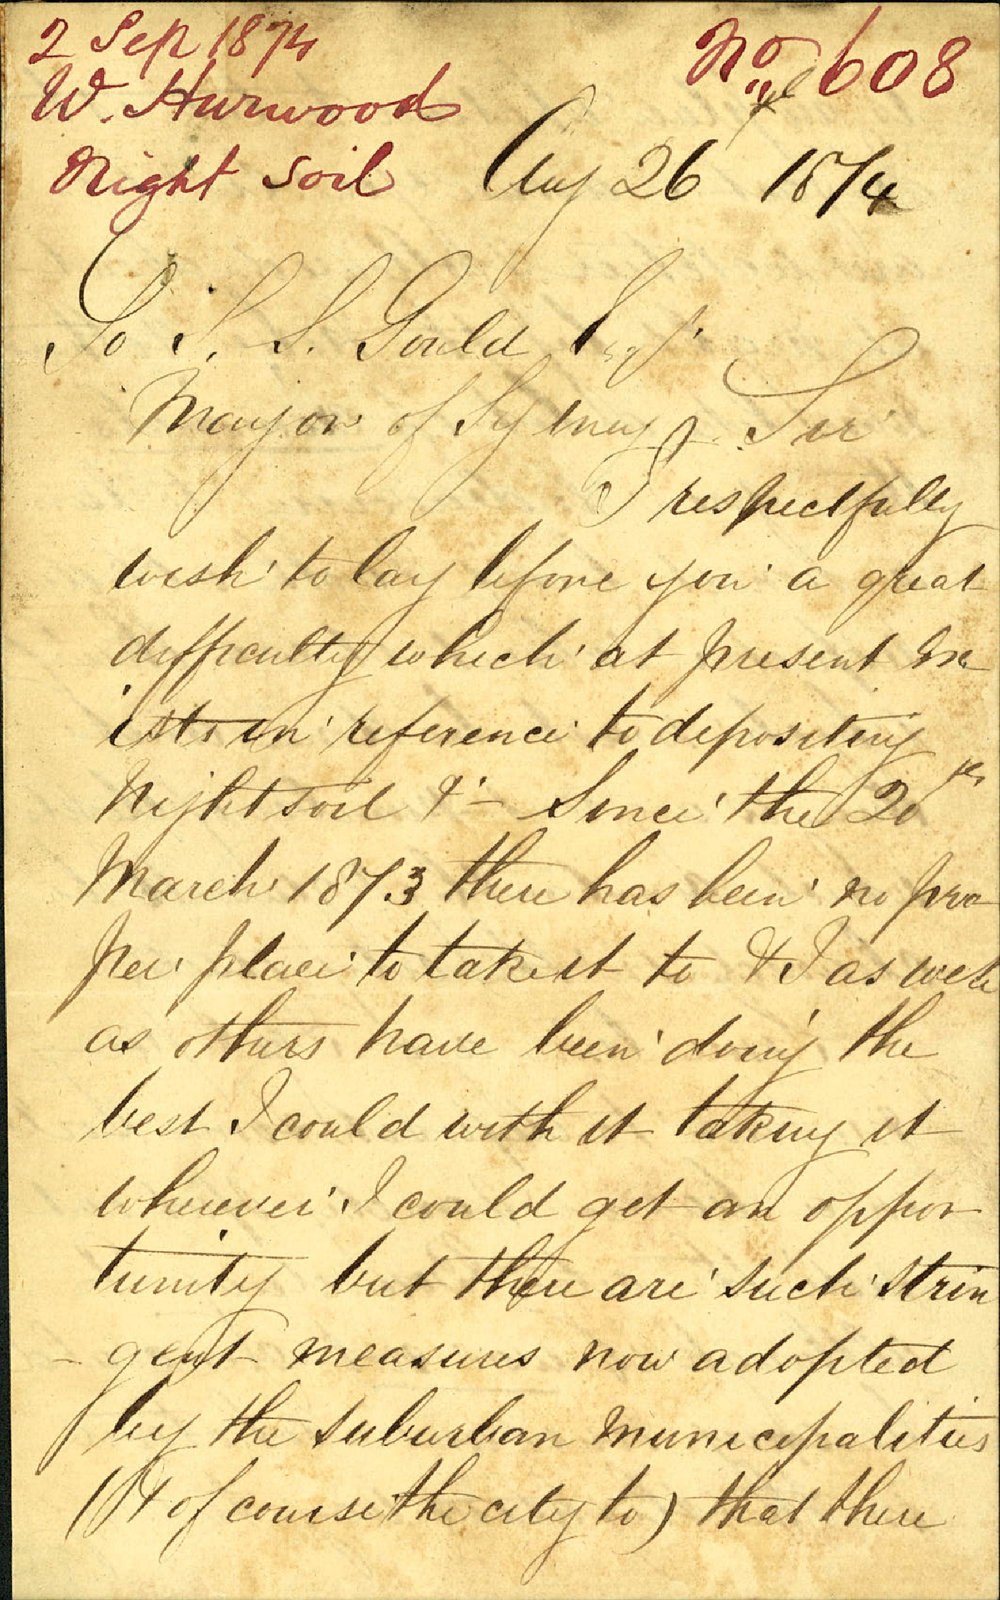 2 Sep 1874
No 608
W. Hurwood
Night Soil
Aug 26 1874
To S. S. Gould Esqr
Mayor of Sydney Sir
I respectfully
wish to lay before you a great
difficulty which at present ex
ists in reference to depositing
Nightsoil &- Since the 20th
March 1873 there has been no pro
per place to take it to & I as well
as others have been doing the
best I could with it taking it
wherever I could get an oppor
tunity but there are such strin
- gent measures now adopted
by the suburban municipalities
(& of course the city to) that there